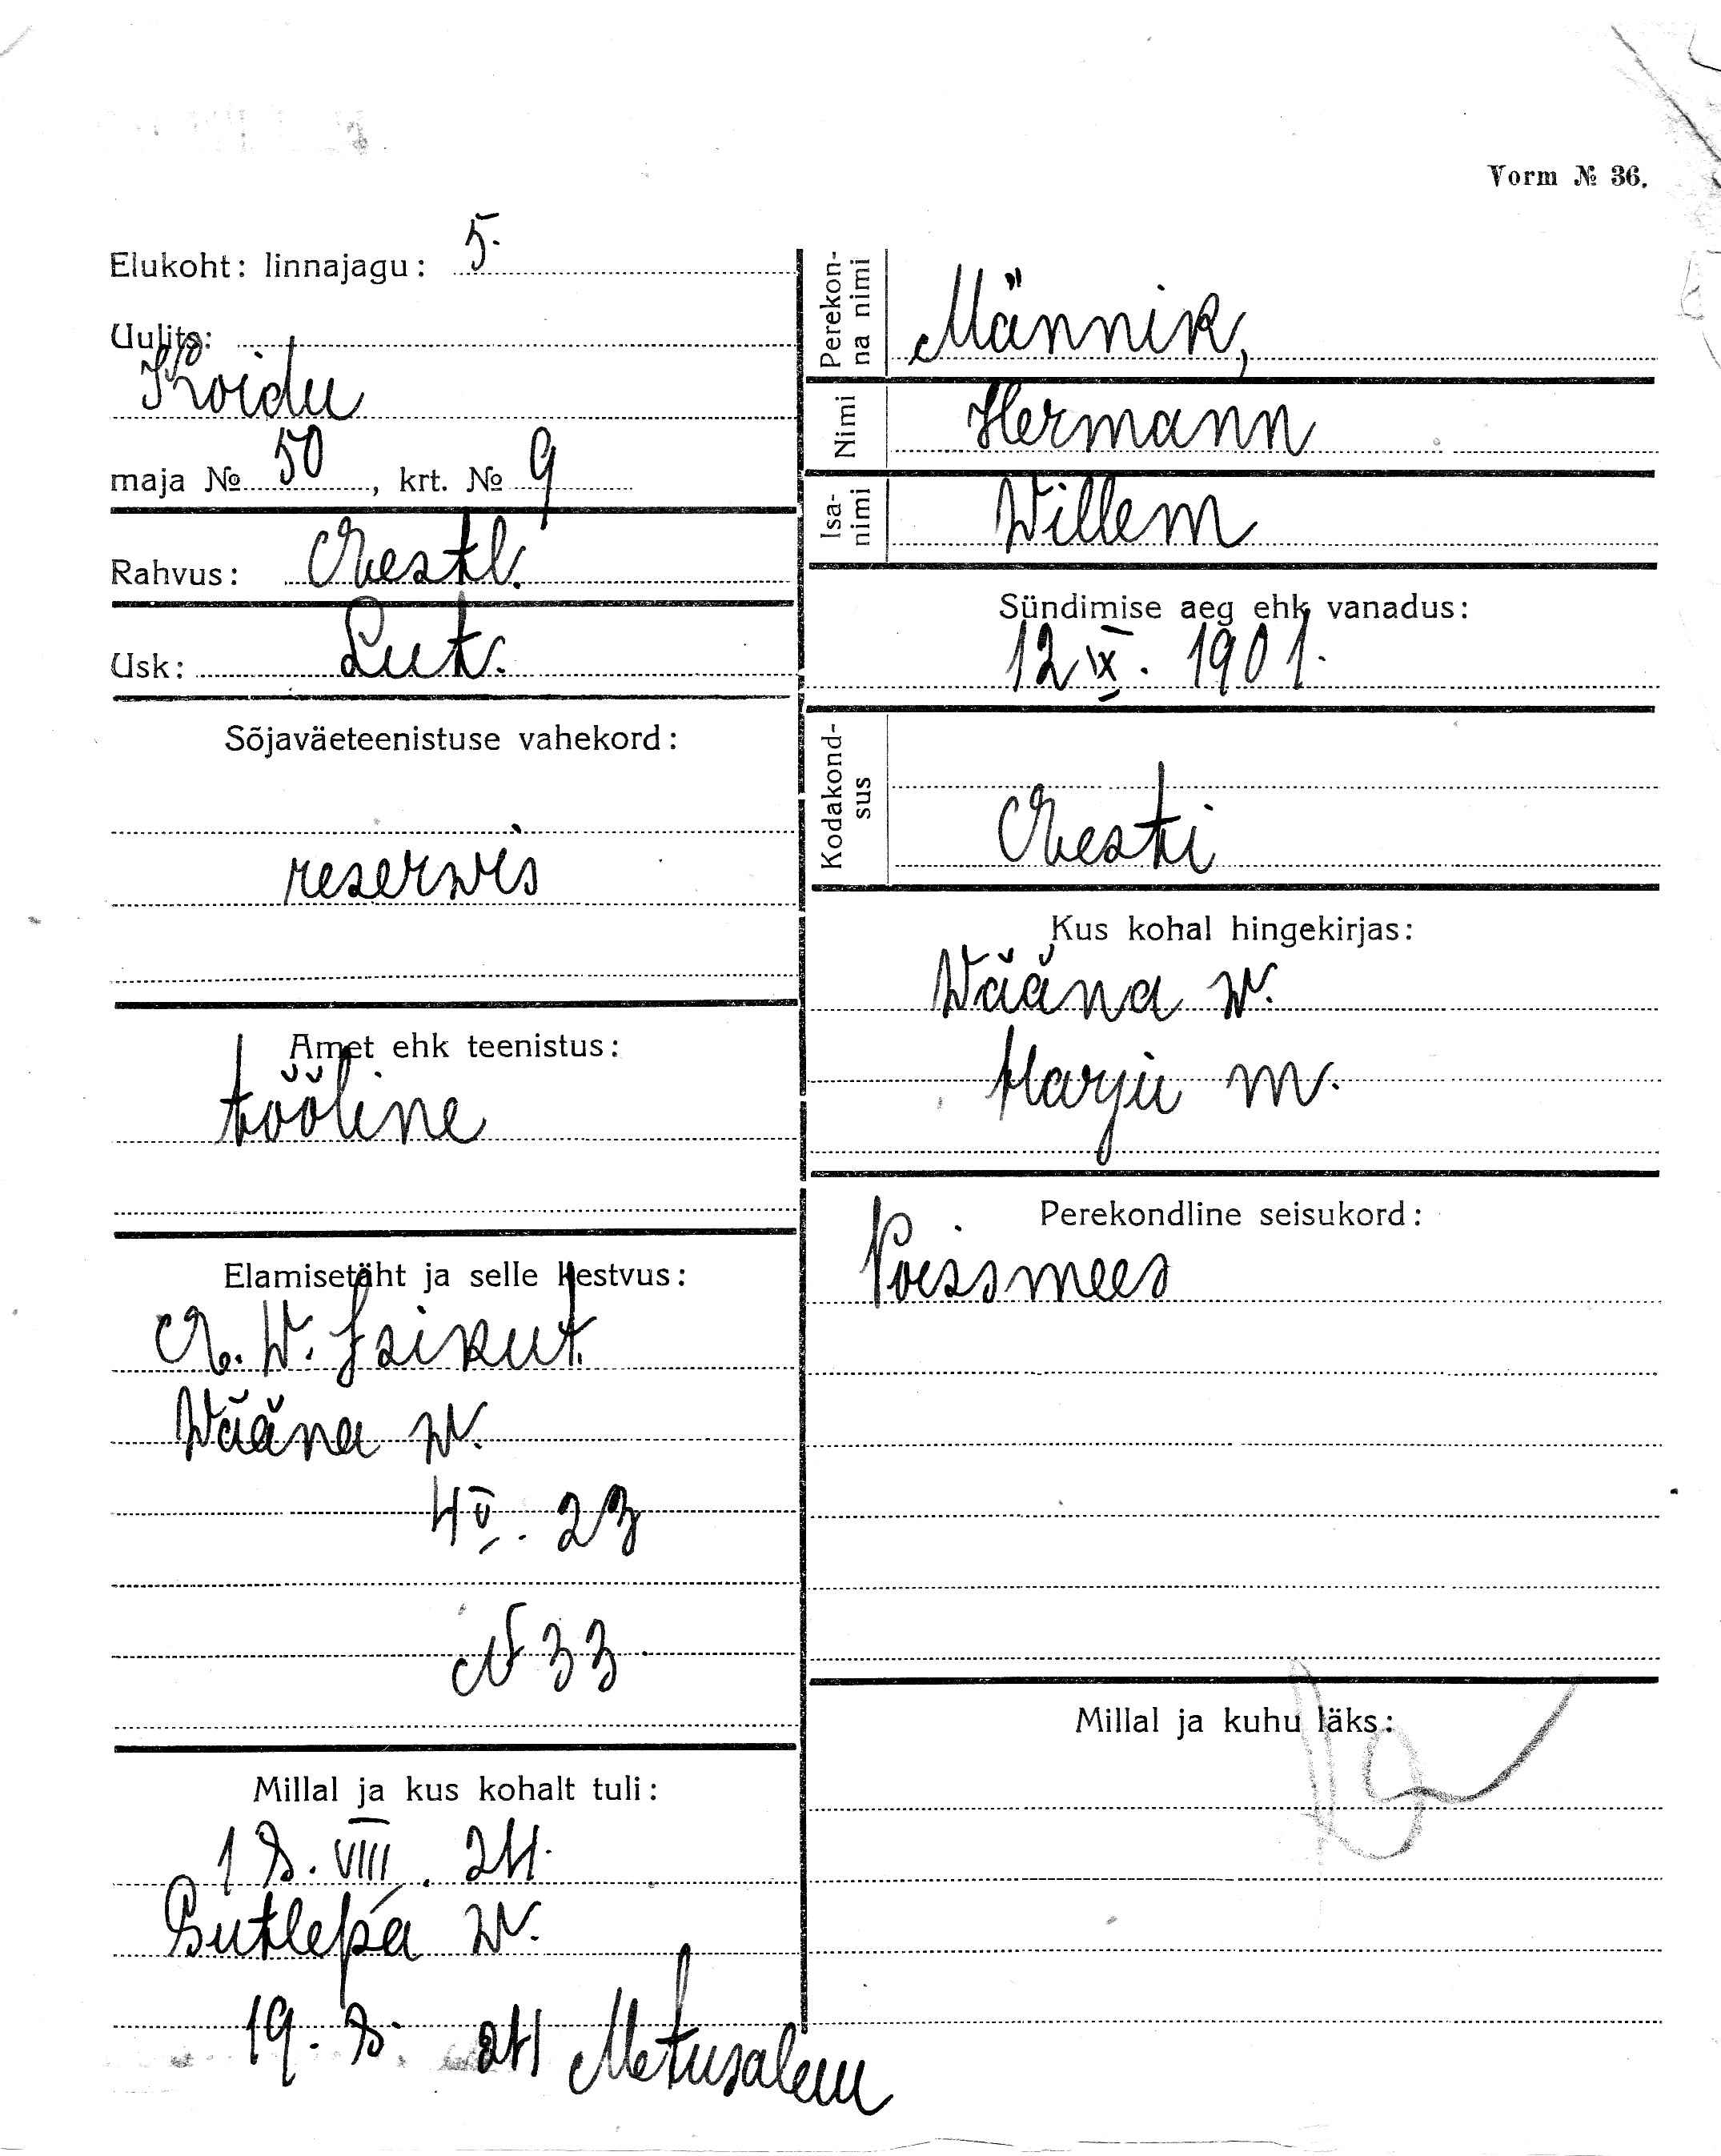 Vorm № 36.
Elukoht: linnajagu: 5.
Uulits:
Koidu
maja № 50, krt. № 9
Rahvus: Eestl.
Usk: Lut.
Sõjaväeteenistuse vahekord:
reserwis
Amet ehk teenistus:
tööline
Elamisetäht ja selle kestvus:
E. W. Isikut.
Wääna w.
4 V. 23
N 33
Millal ja kus kohalt tuli:
18. VIII. 24.
Sutlepa w.
19. 8. 24 Metusalem
Perekon-
na nimi
Männik,
Nimi
Hermann
Isa-
nimi
Willem
Sündimise aeg ehk vanadus:
12 IX. 1901.
Kodakond-
sus
Eesti
Kus kohal hingekirjas:
Wääna w.
Harju m.
Perekondline seisukord:
Poissmees
Millal ja kuhu läks: